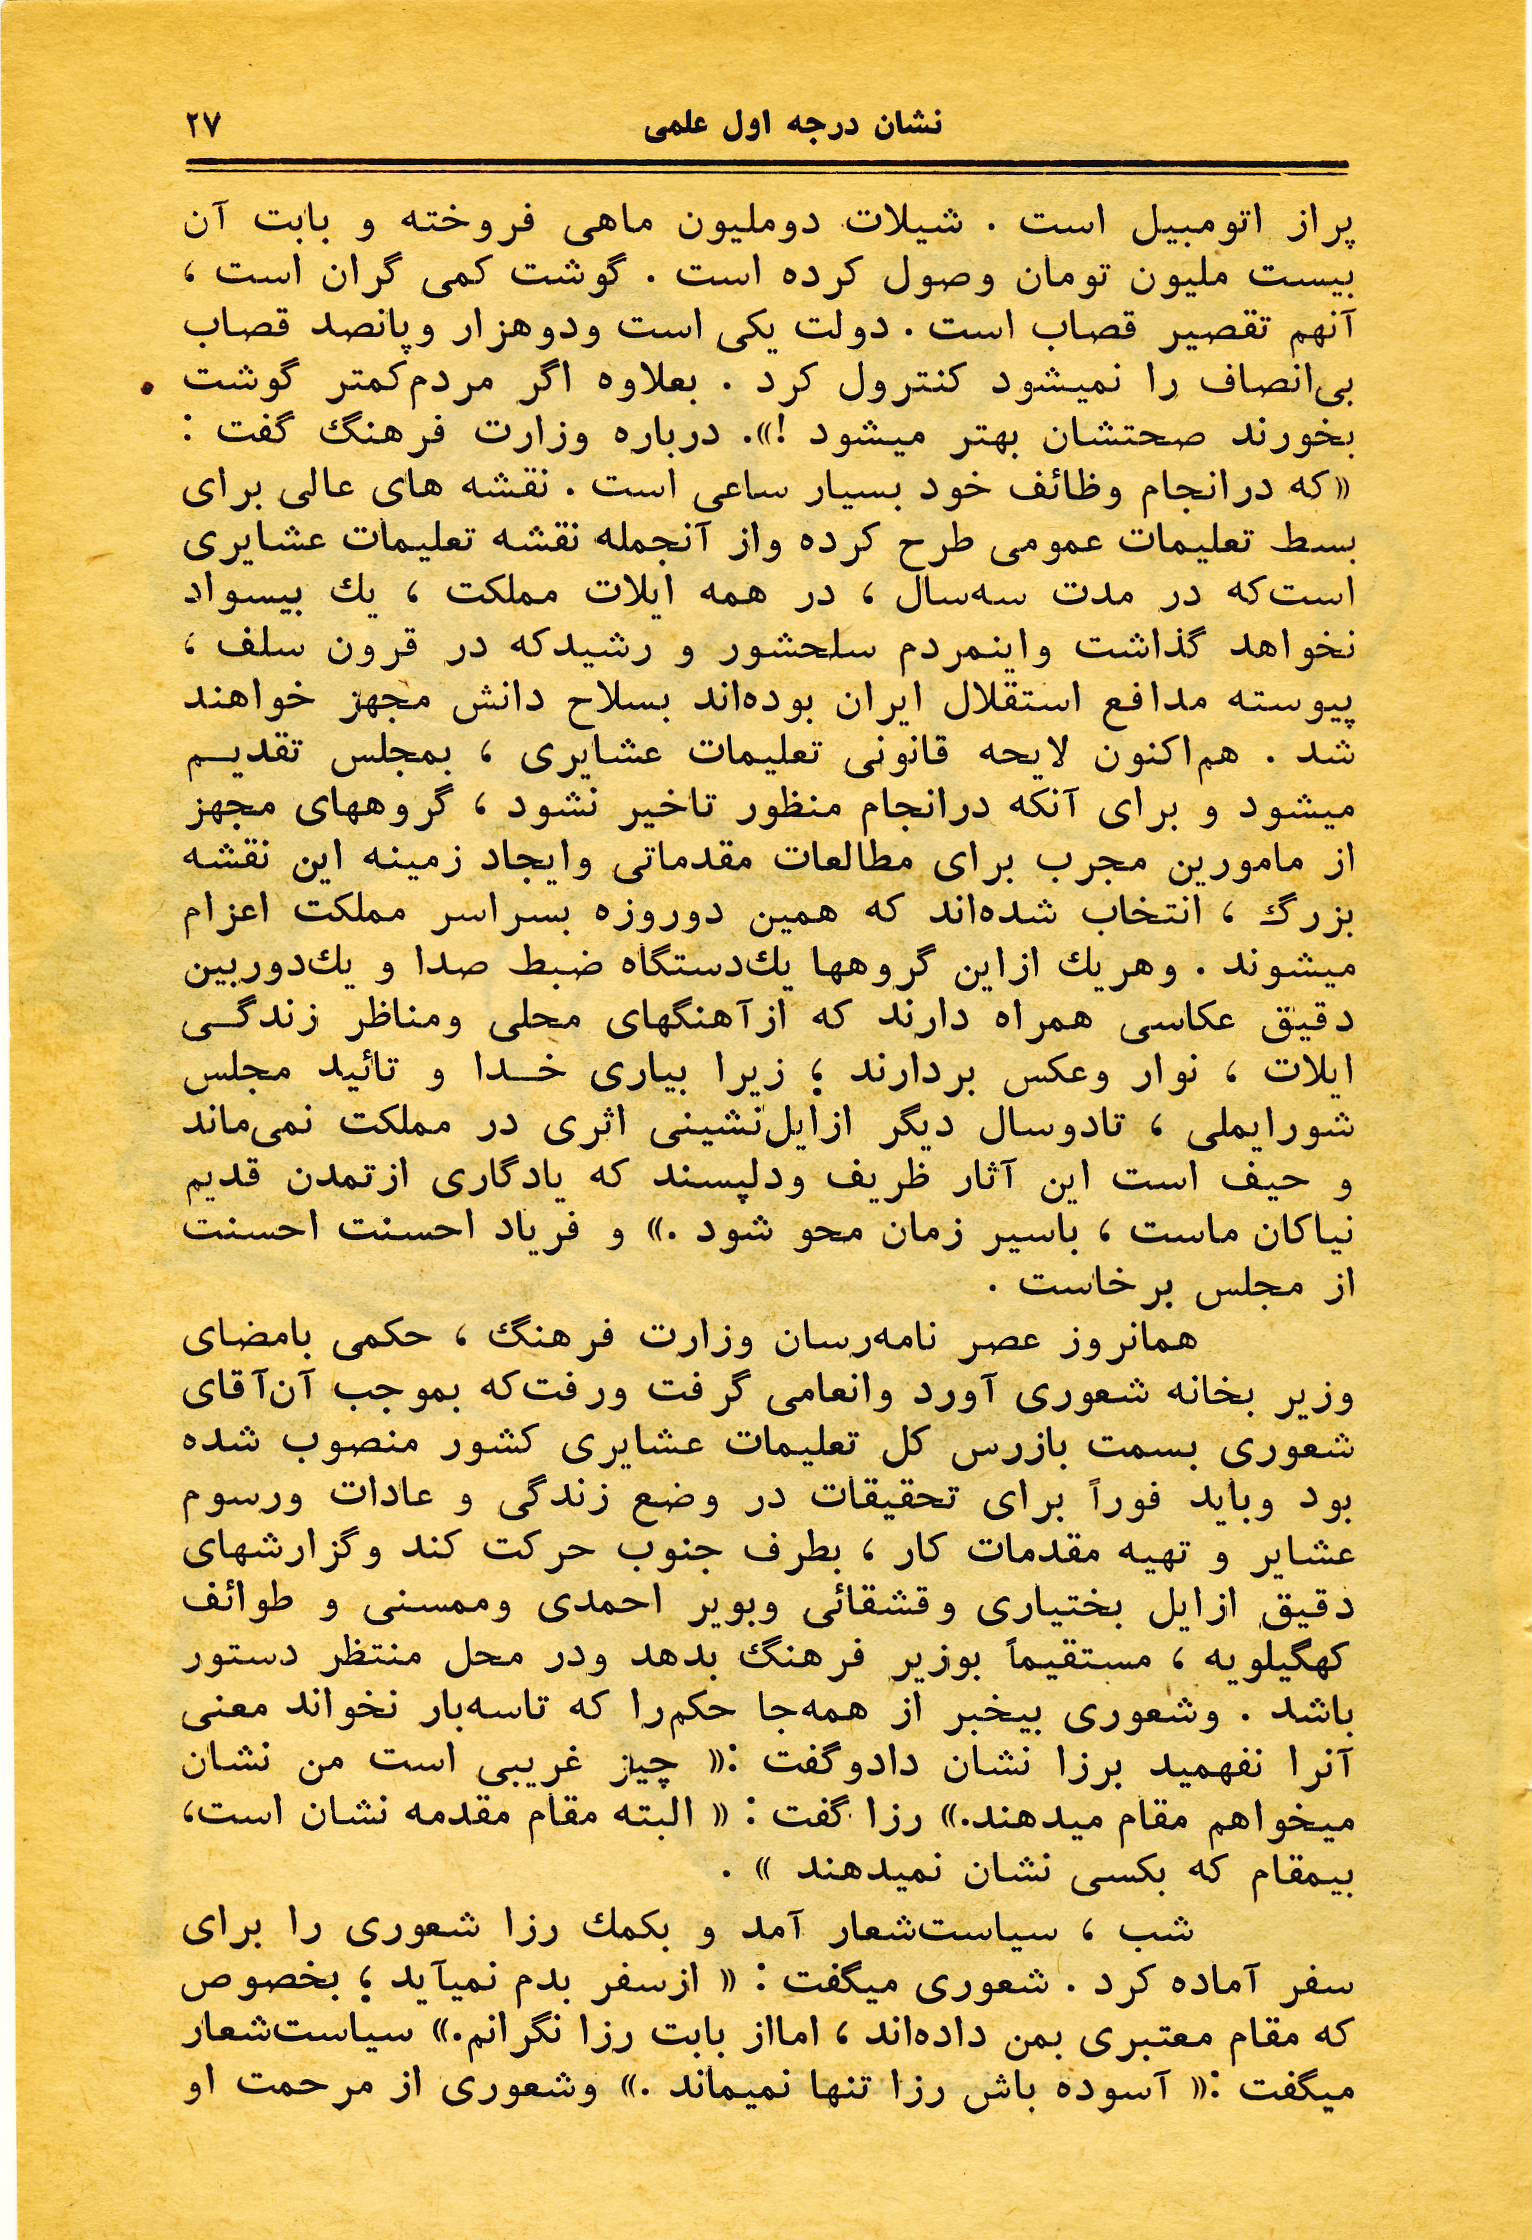 نشان درجه اول علمی ۲۷
پراز اتومبیل است . شیلات دوملیون ماهی فروخته و بابت آن
بیست ملیون تومان وصول کرده است . گوشت کمی گران است ،
آنهم تقصیر قصاب است . دولت یکی است ودوهزار وپانصد قصاب
بی‌انصاف را نمیشود کنترول کرد . بعلاوه اگر مردم‌کمتر گوشت
بخورند صحتشان بهتر میشود !». درباره وزارت فرهنگ گفت :
«که درانجام وظائف خود بسیار ساعی است . نقشه های عالی برای
بسط تعلیمات عمومی طرح کرده واز آنجمله نقشه تعلیمات عشایری
است‌که در مدت سه‌سال ، در همه ایلات مملکت ، یك بیسواد
نخواهد گذاشت واینمردم سلحشور و رشیدکه در قرون سلف ،
پیوسته مدافع استقلال ایران بوده‌اند بسلاح دانش مجهز خواهند
شد . هم‌اکنون لایحه قانونی تعلیمات عشایری ، بمجلس تقدیـم
میشود و برای آنکه درانجام منظور تاخیر نشود ، گروههای مجهز
از مامورین مجرب برای مطالعات مقدماتی وایجاد زمینه این نقشه
بزرگ ، انتخاب شده‌اند که همین دوروزه بسراسر مملکت اعزام
میشوند . وهریك ازاین گروهها یك‌دستگاه ضبط صدا و یك‌دوربین
دقیق عکاسی همراه دارند که ازآهنگهای محلی ومناظر زندگـی
ایلات ، نوار وعکس بردارند ؛ زیرا بیاری خـدا و تائید مجلس
شورایملی ، تادوسال دیگر ازایل‌نشینی اثری در مملکت نمی‌ماند
و حیف است این آثار ظریف ودلپسند که یادگاری ازتمدن قدیم
نیاکان ماست ، باسیر زمان محو شود .» و فریاد احسنت احسنت
از مجلس برخاست .
همانروز عصر نامه‌رسان وزارت فرهنگ ، حکمی بامضای
وزیر بخانه شعوری آورد وانعامی گرفت ورفت‌که بموجب آن‌آقای
شعوری بسمت بازرس کل تعلیمات عشایری کشور منصوب شده
بود وباید فوراً برای تحقیقات در وضع زندگی و عادات ورسوم
عشایر و تهیه مقدمات کار ، بطرف جنوب حرکت کند وگزارشهای
دقیق ازایل بختیاری وقشقائی وبویر احمدی وممسنی و طوائف
کهگیلویه ، مستقیماً بوزیر فرهنگ بدهد ودر محل منتظر دستور
باشد . وشعوری بیخبر از همه‌جا حکم‌را که تاسه‌بار نخواند معنی
آنرا نفهمید برزا نشان دادوگفت :« چیز غریبی است من نشان
میخواهم مقام میدهند.» رزا گفت : « البته مقام مقدمه نشان است،
بیمقام که بکسی نشان نمیدهند » .
شب ، سیاست‌شعار آمد و بکمك رزا شعوری را برای
سفر آماده کرد . شعوری میگفت : « ازسفر بدم نمیآید ؛ بخصوص
که مقام معتبری بمن داده‌اند ، امااز بابت رزا نگرانم.» سیاست‌شعار
میگفت :« آسوده باش رزا تنها نمیماند .» وشعوری از مرحمت او